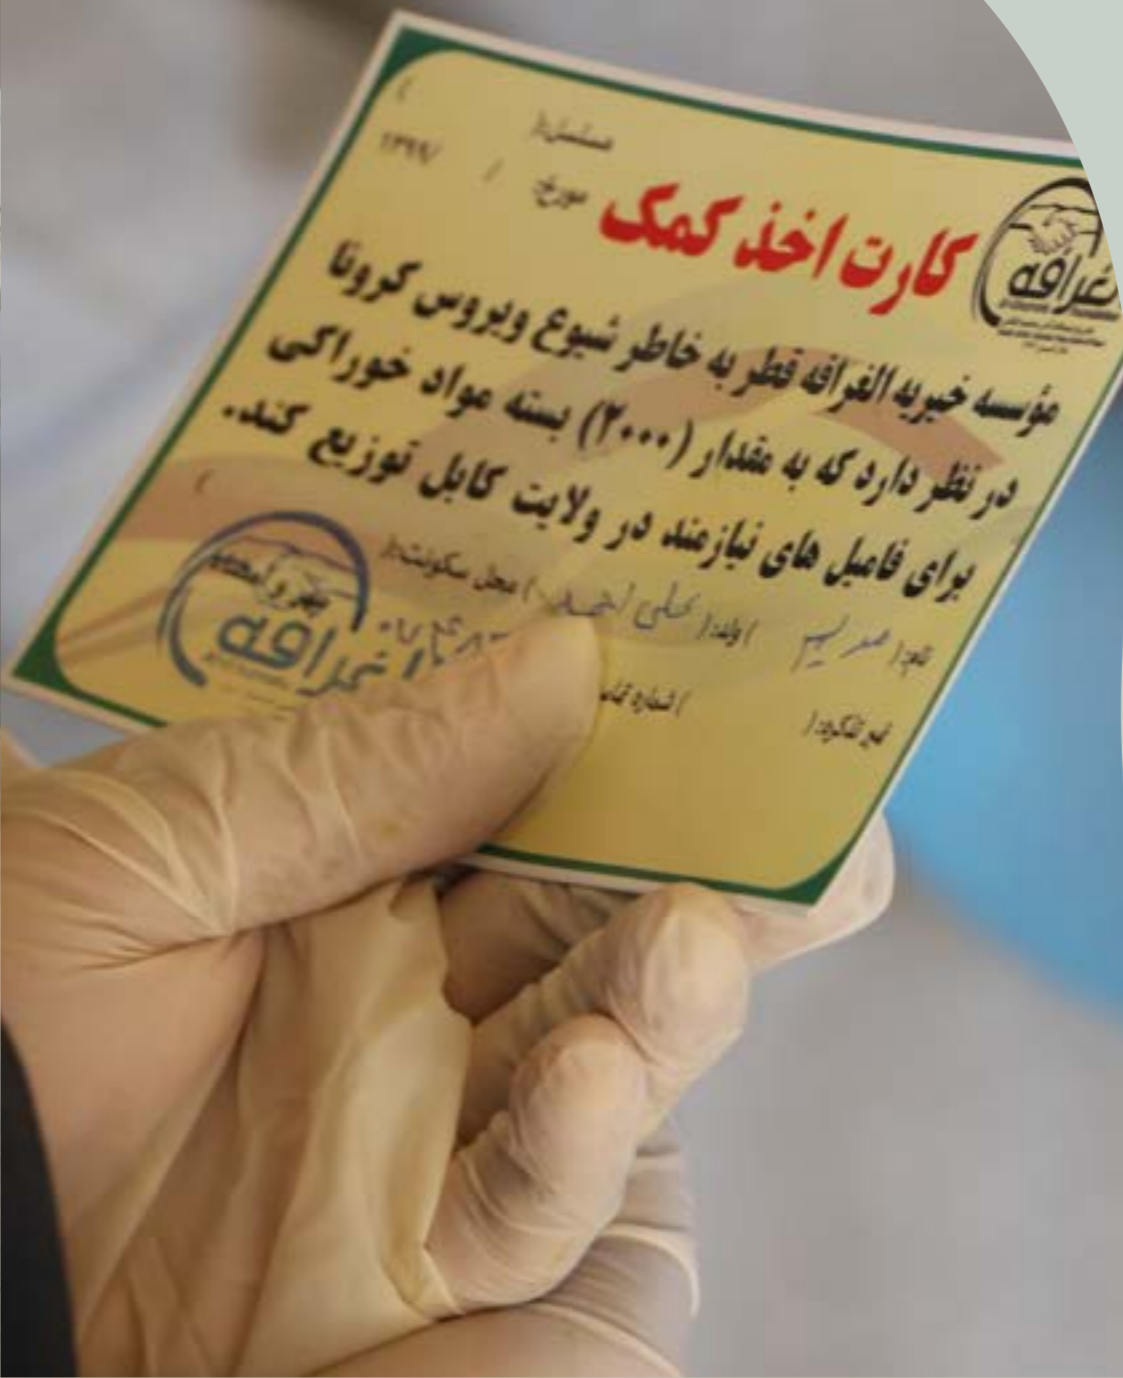 مسلسل:( )
مورخ: / /۱۳۹۹
کارت اخذ کمک
غرافه
مؤسسه خیریه الغرافه قطر به خاطر شیوع ویروس کرونا
در نظر دارد که به مقدار (۲۰۰۰) بسته مواد خوراکی
برای فامیل های نیازمند در ولایت کابل توزیع کند.
نام:( ) ولد:( علی احمد ) محل سکونت:( )
نمبر تذکره:( ) شماره
الغرافه